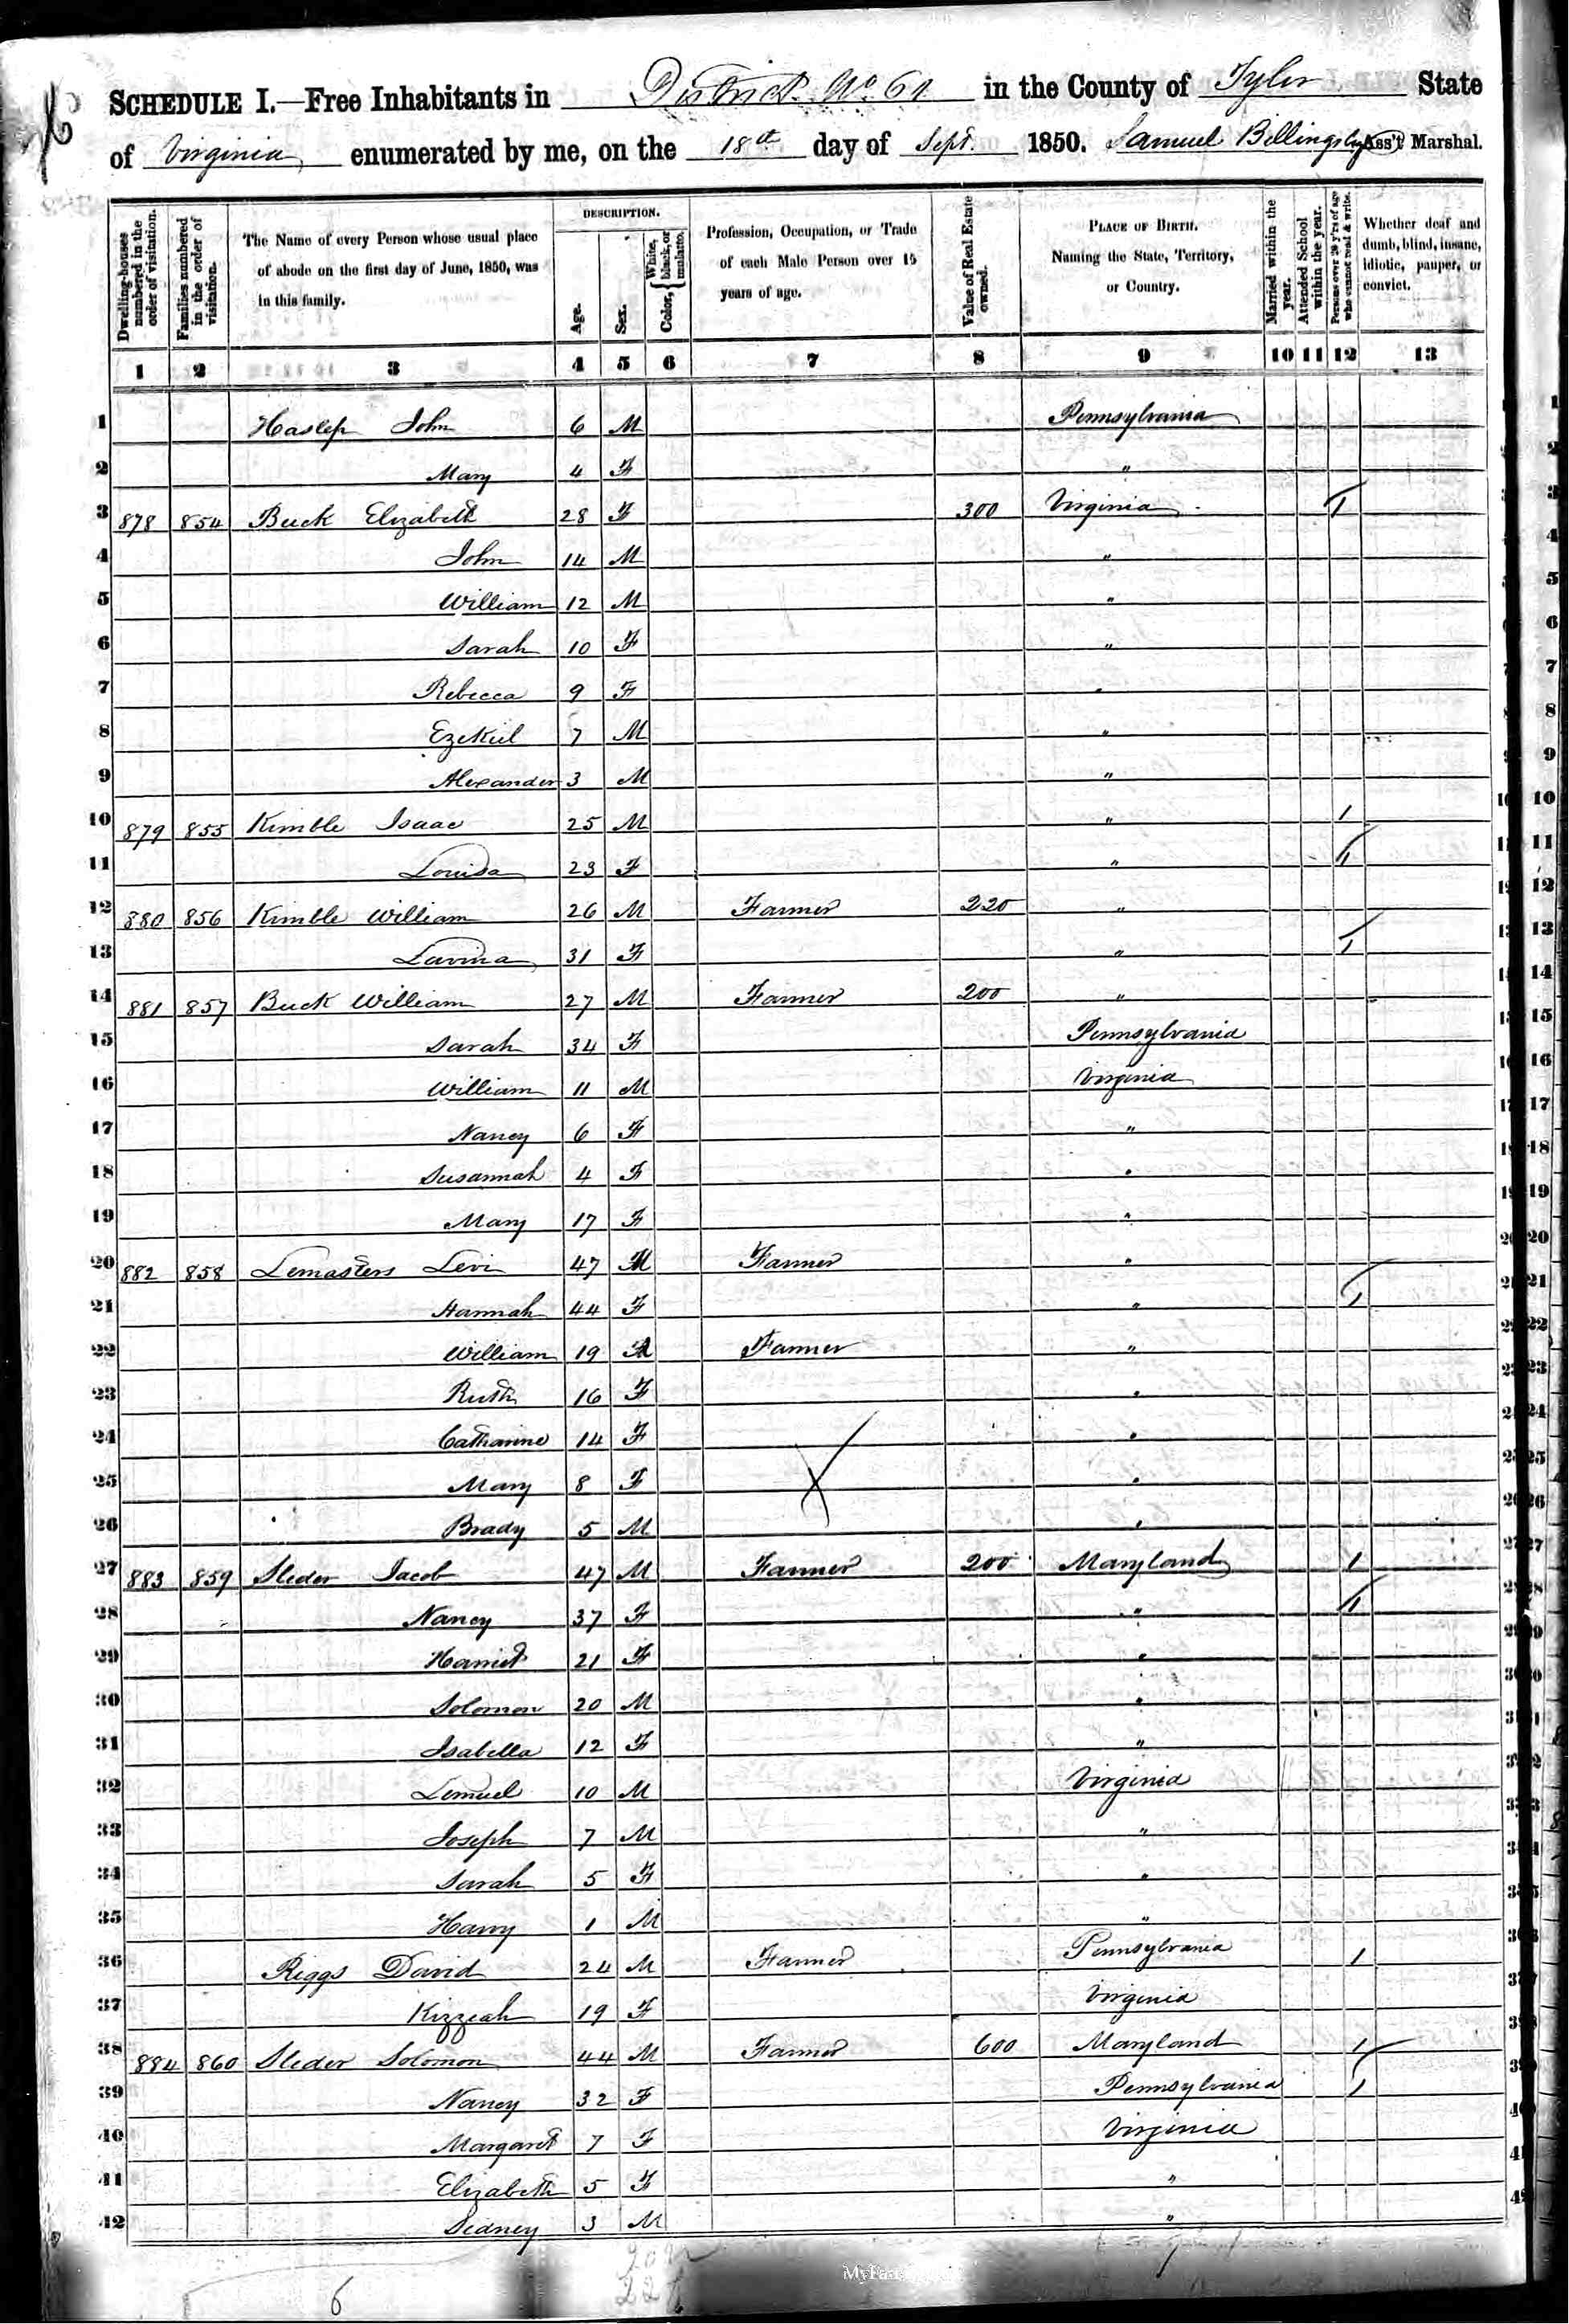 SCHEDULE I.—Free Inhabitants in District No 61 in the County of Tyler State
of Virginia enumerated by me, on the 18th day of Sept. 1850. Samuel Billingsley Ass't Marshal.
Dwelling-houses numbered in the order of visitation.
Families numbered in the order of visitation.
The Name of every Person whose usual place of abode on the first day of June, 1850, was in this family.
DESCRIPTION.
Age.
Sex.
Color, { White, black, or mulatto.
Profession, Occupation, or Trade of each Male Person over 15 years of age.
Value of Real Estate owned.
PLACE OF BIRTH. Naming the State, Territory, or Country.
Married within the year.
Attended School within the year.
Persons over 20 y'rs of age who cannot read & write.
Whether deaf and dumb, blind, insane, idiotic, pauper, or convict.
1 2 3 4 5 6 7 8 9 10 11 12 13
1 Haslep John 6 M Pennsylvania
2 Mary 4 F "
3 878 854 Buck Elizabeth 28 F 300 Virginia 1
4 John 14 M "
5 William 12 M "
6 Sarah 10 F "
7 Rebecca 9 F "
8 Ezekiel 7 M "
9 Alexander 3 M "
10 879 855 Kimble Isaac 25 M " 1
11 Louisa 23 F " 1
12 880 856 Kimble William 26 M Farmer 220 "
13 Lavina 31 F " 1
14 881 857 Buck William 27 M Farmer 200 "
15 Sarah 34 F Pennsylvania
16 William 11 M Virginia
17 Nancy 6 F "
18 Susannah 4 F "
19 Mary 17 F "
20 882 858 Lemasters Levi 47 M Farmer "
21 Hannah 44 F " 1
22 William 19 M Farmer "
23 Ruth 16 F "
24 Catharine 14 F "
25 Mary 8 F "
26 Brady 5 M "
27 883 859 Sleder Jacob 47 M Farmer 200 Maryland 1
28 Nancy 37 F " 1
29 Harriet 21 F "
30 Solomon 20 M "
31 Isabella 12 F "
32 Lemuel 10 M Virginia
33 Joseph 7 M "
34 Sarah 5 F "
35 Harry 1 M "
36 Riggs David 24 M Farmer Pennsylvania 1
37 Kizzeah 19 F Virginia
38 884 860 Sleder Solomon 44 M Farmer 600 Maryland 1
39 Nancy 32 F Pennsylvania 1
40 Margaret 7 F Virginia
41 Elizabeth 5 F "
42 Sidney 3 M "
6